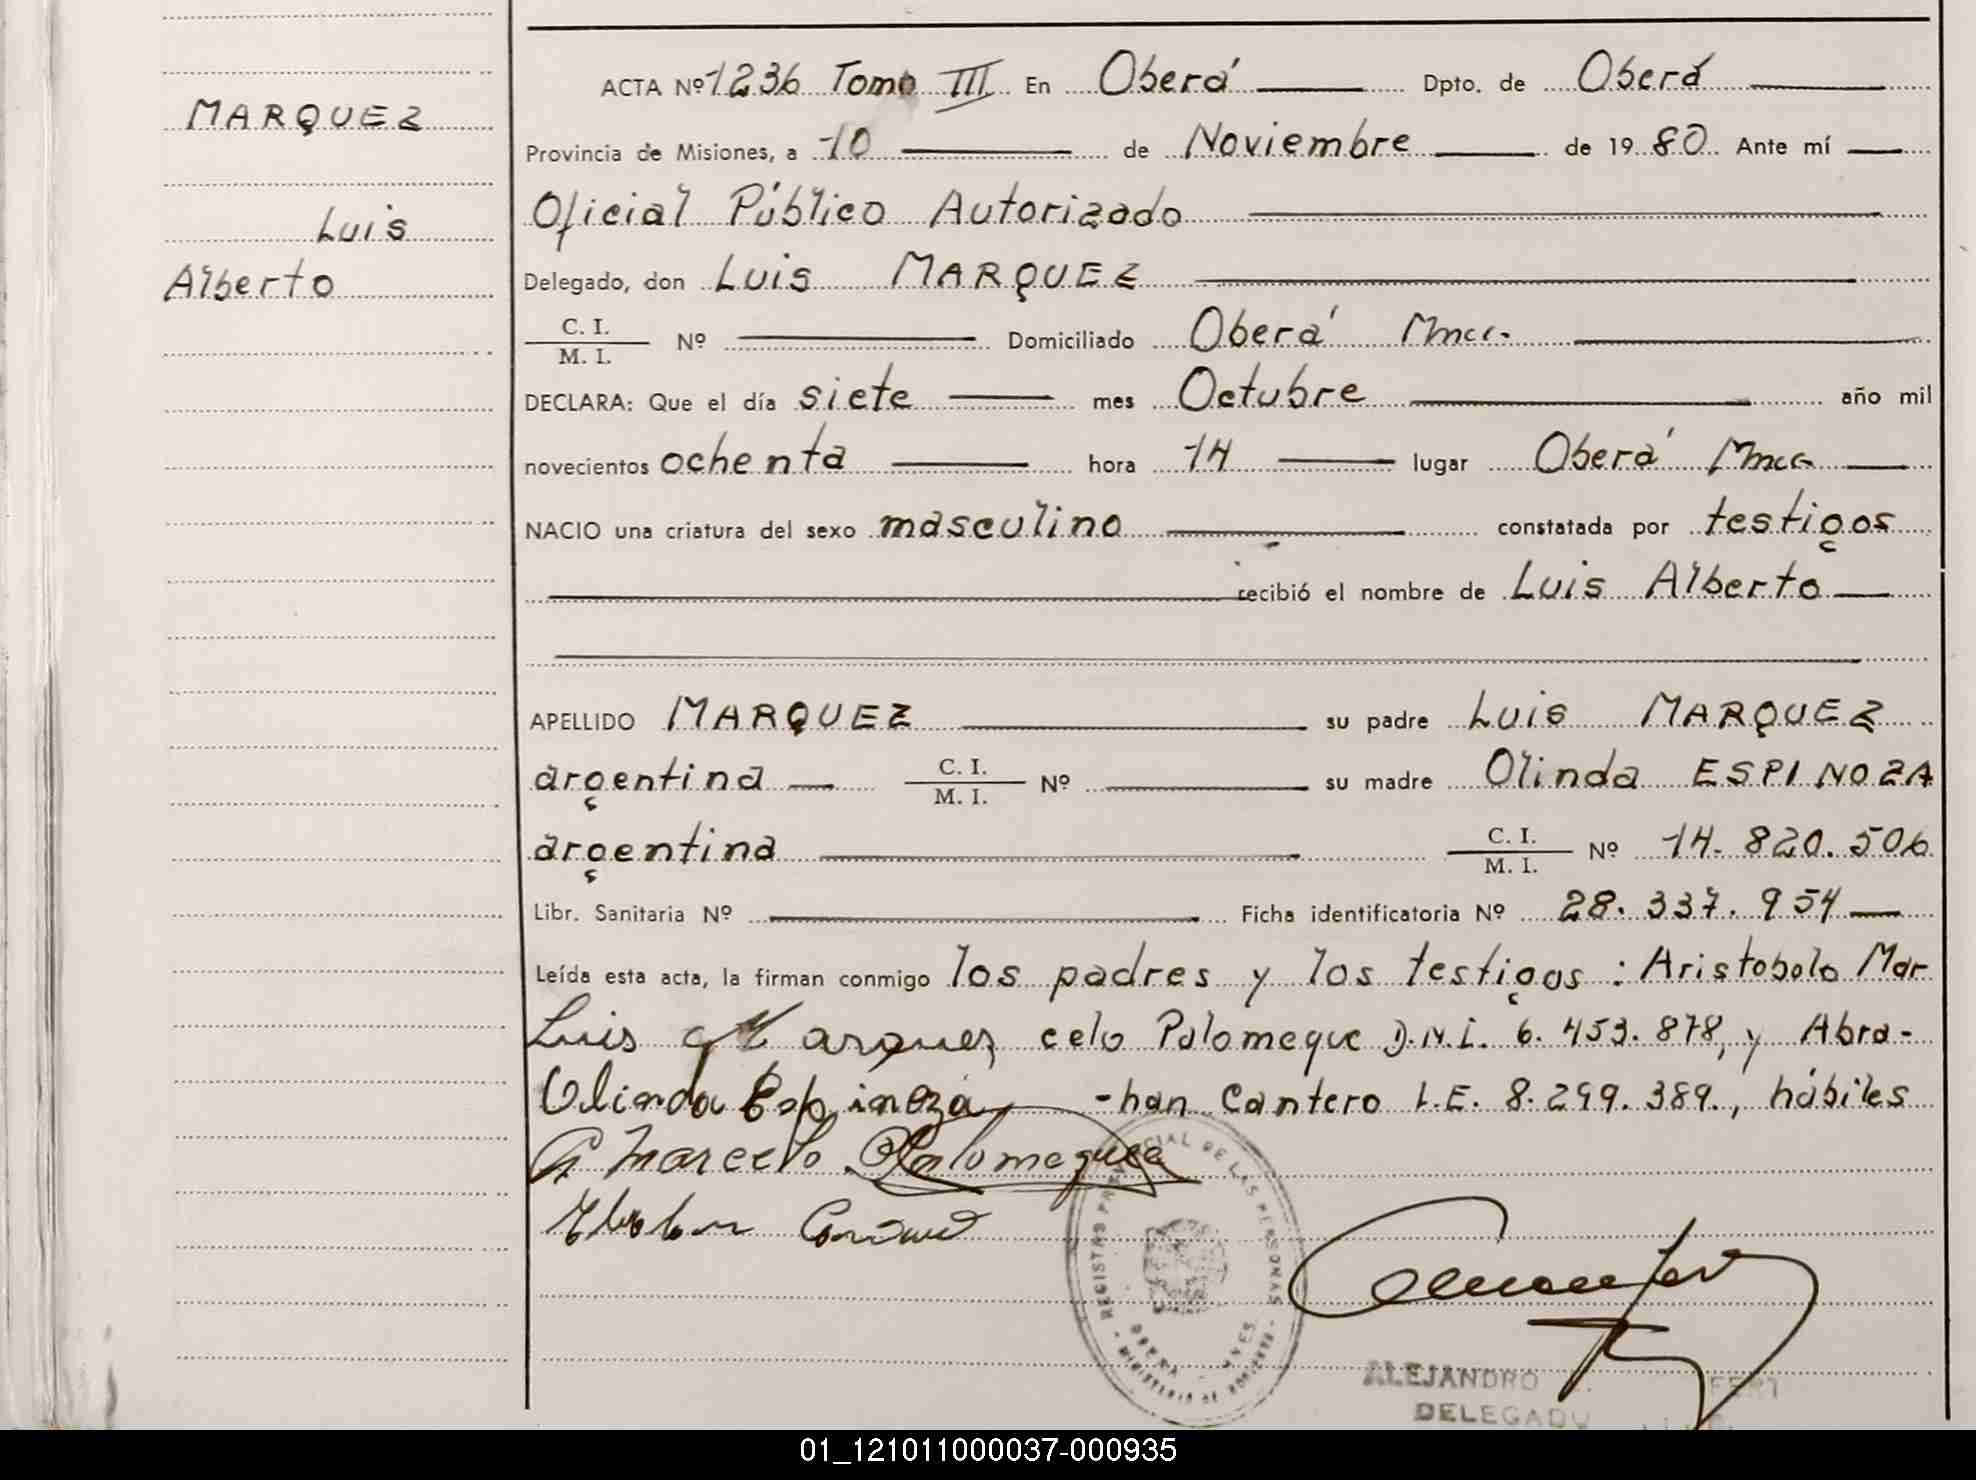 MARQUEZ
Luis
Alberto
ACTA Nº 1236 Tomo III En Oberá Dpto. de Oberá
Provincia de Misiones, a 10 de Noviembre de 1980 Ante mí
Oficial Público Autorizado
Delegado, don Luis MARQUEZ
C. I.
M. I. Nº Domiciliado Oberá Mnes.
DECLARA: Que el día siete mes Octubre año mil
novecientos ochenta hora 14 lugar Oberá Mnes
NACIO una criatura del sexo masculino constatada por testigos
recibió el nombre de Luis Alberto
APELLIDO MARQUEZ su padre Luis MARQUEZ
argentina C. I. M. I. Nº su madre Olinda ESPINOZA
argentina C. I. M. I. Nº 14.820.506
Libr. Sanitaria Nº Ficha identificatoria Nº 28.337.954
Leída esta acta, la firman conmigo los padres y los testigos: Aristobolo Mar
Luis Marquez celo Palomeque D.N.I. 6.453.878, y Abra-
Olinda Espinoza -han Cantero L.E. 8.299.389., hábiles
A Marcelo Palomeque
REGISTRO PROVINCIAL DE LAS PERSONAS
ALEJANDRO
DELEGADO
01_121011000037-000935